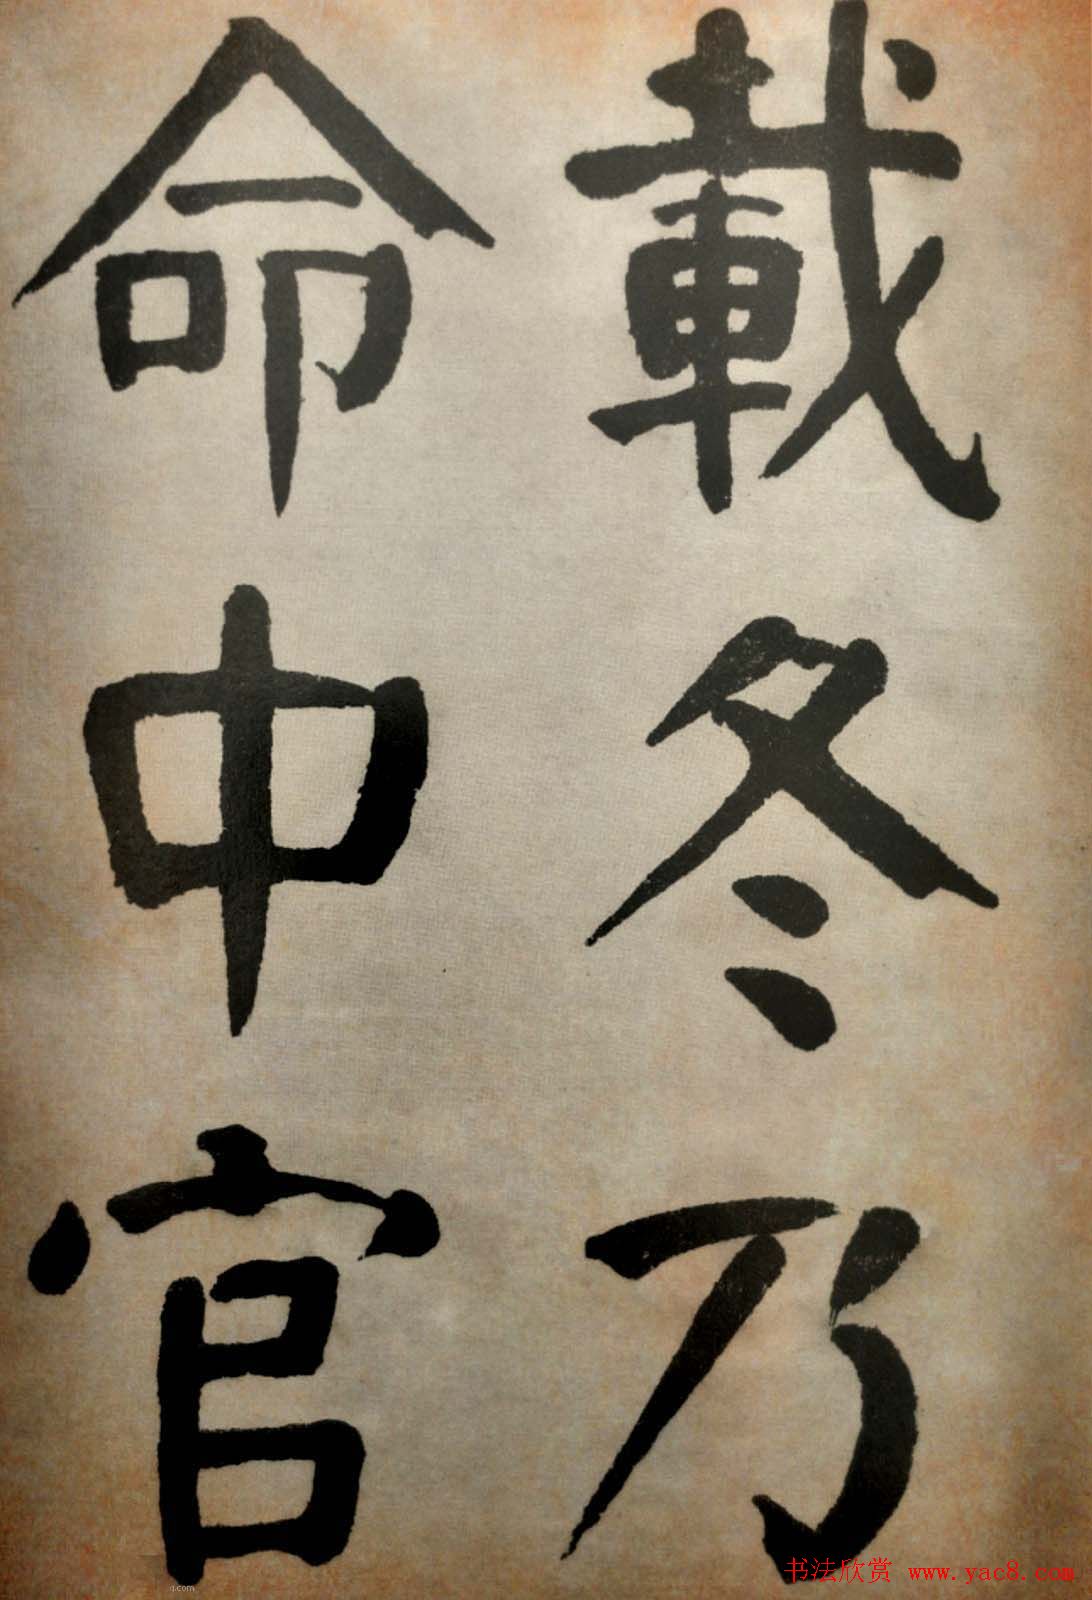 載冬乃
命中官
书法欣赏 www.yac8.com
q.com